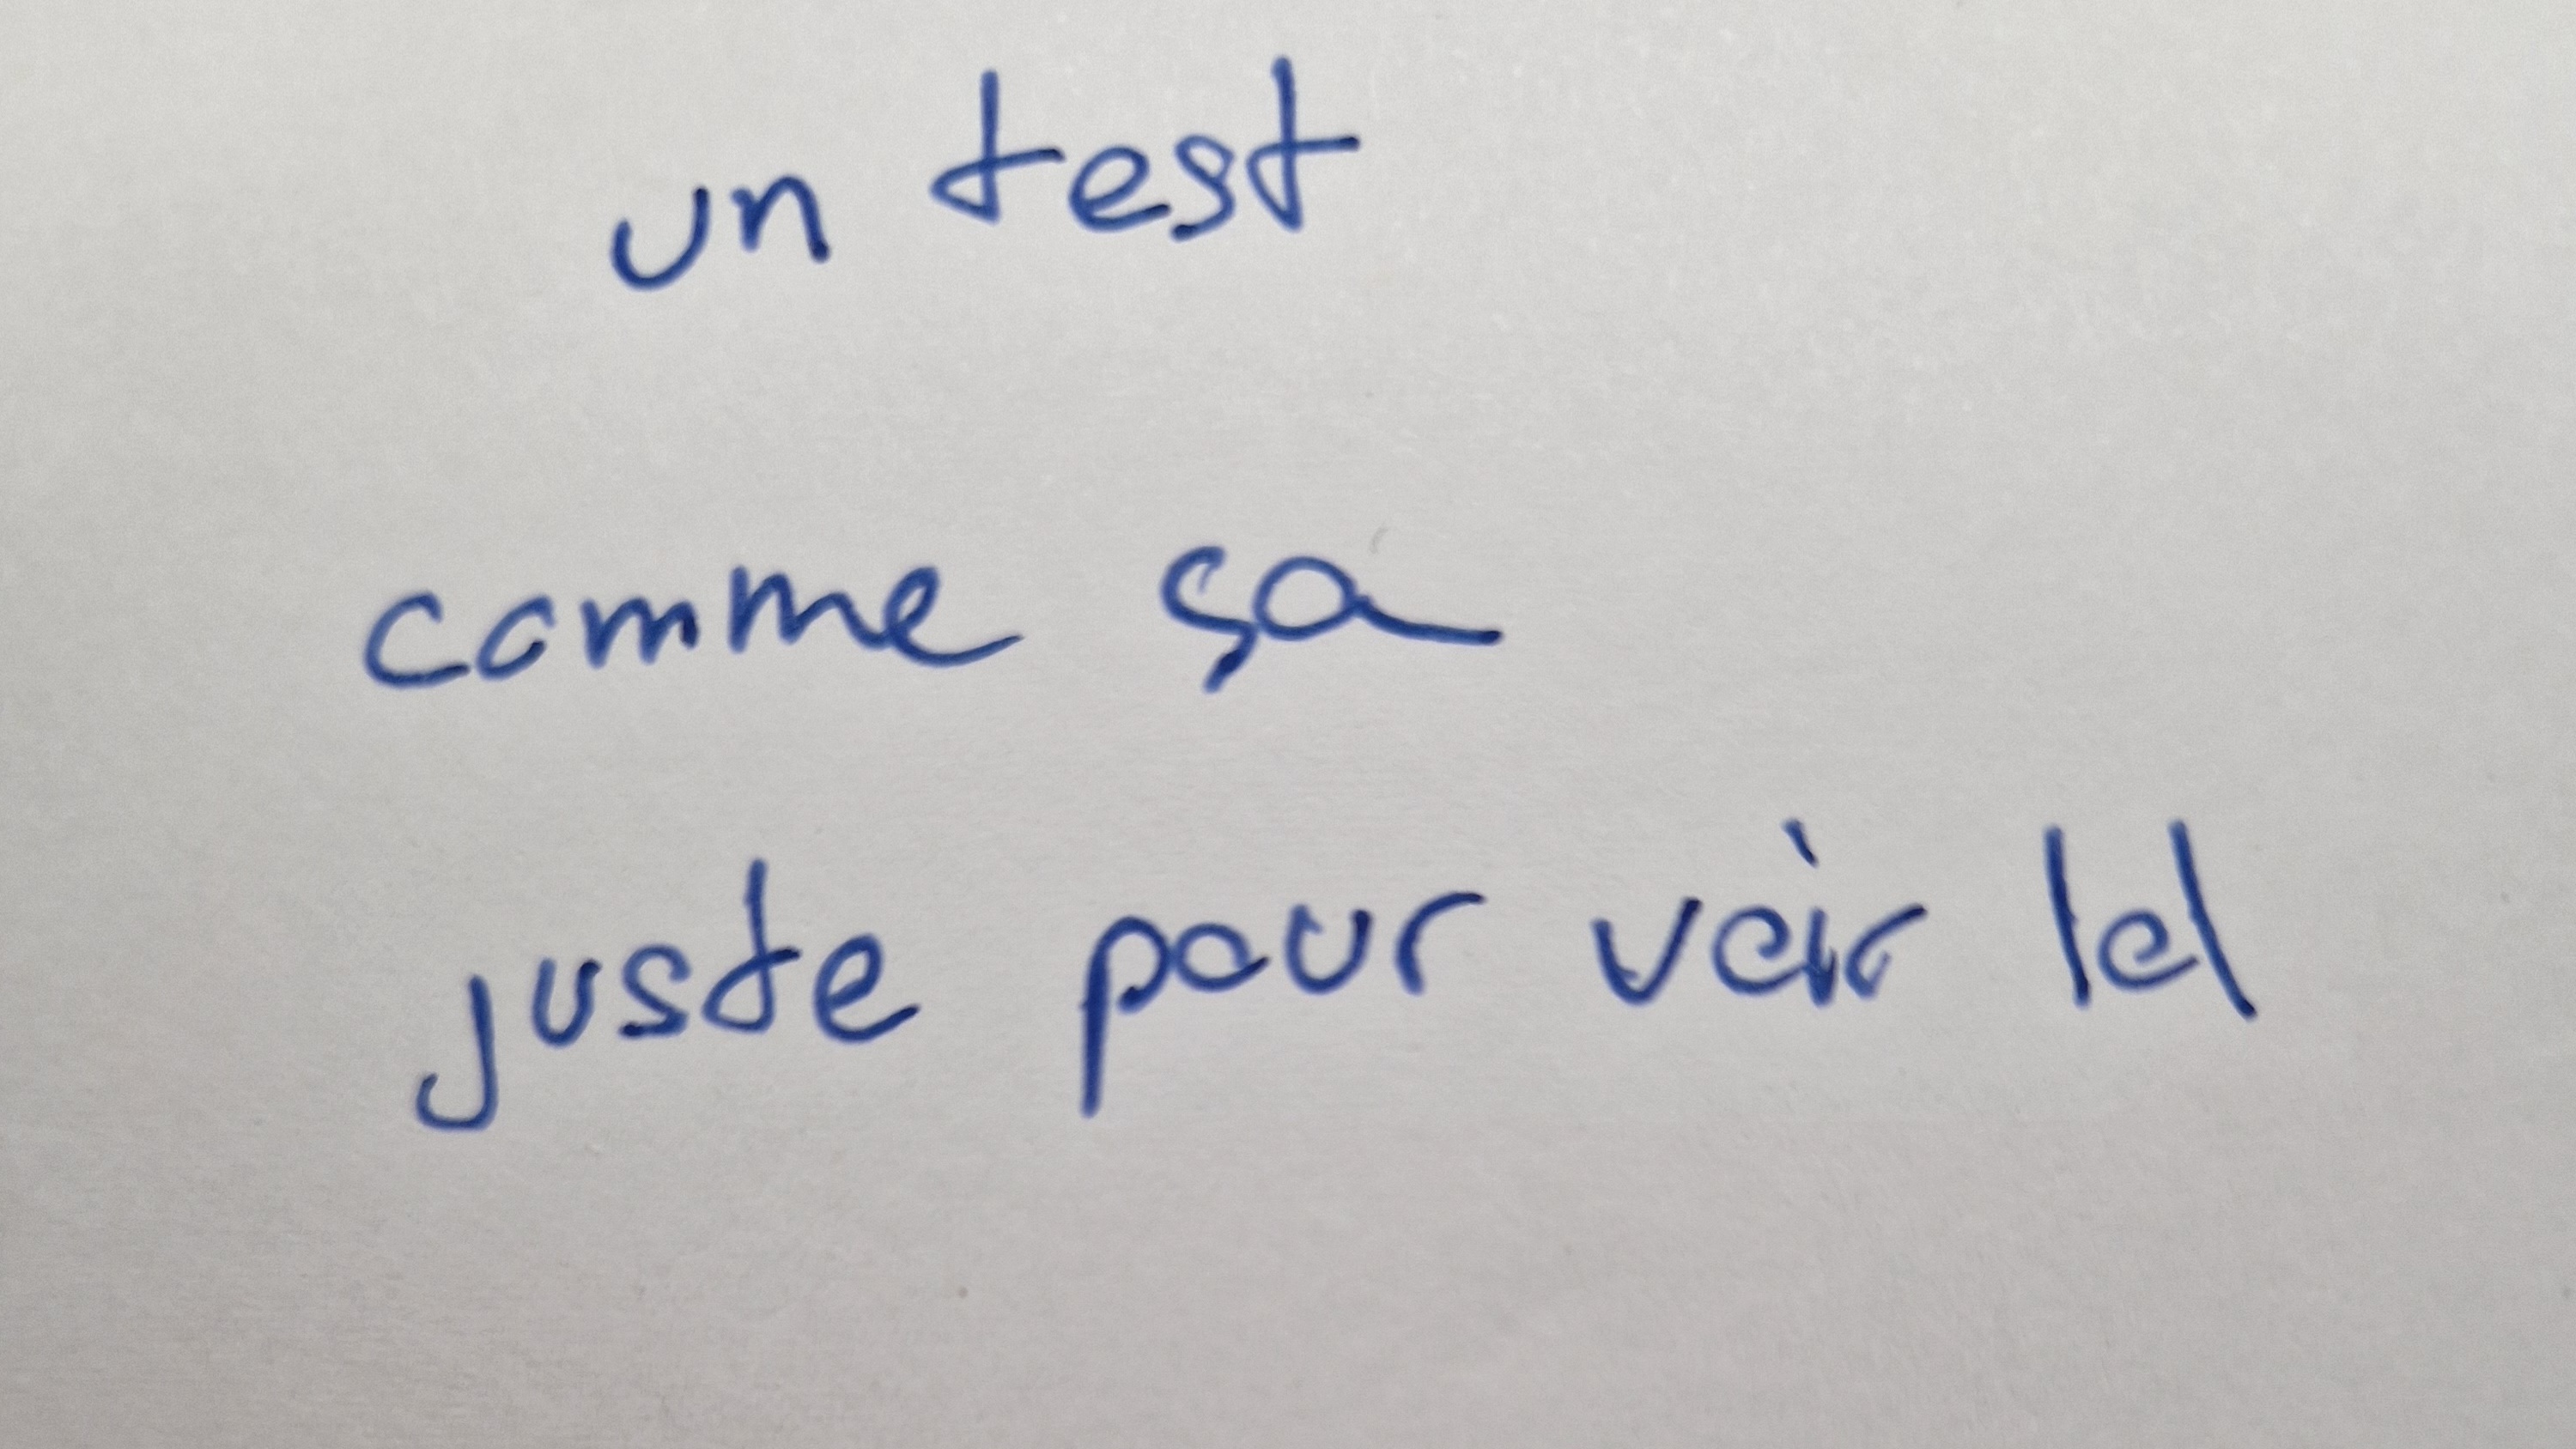 un test
comme ça
juste pour voir lol